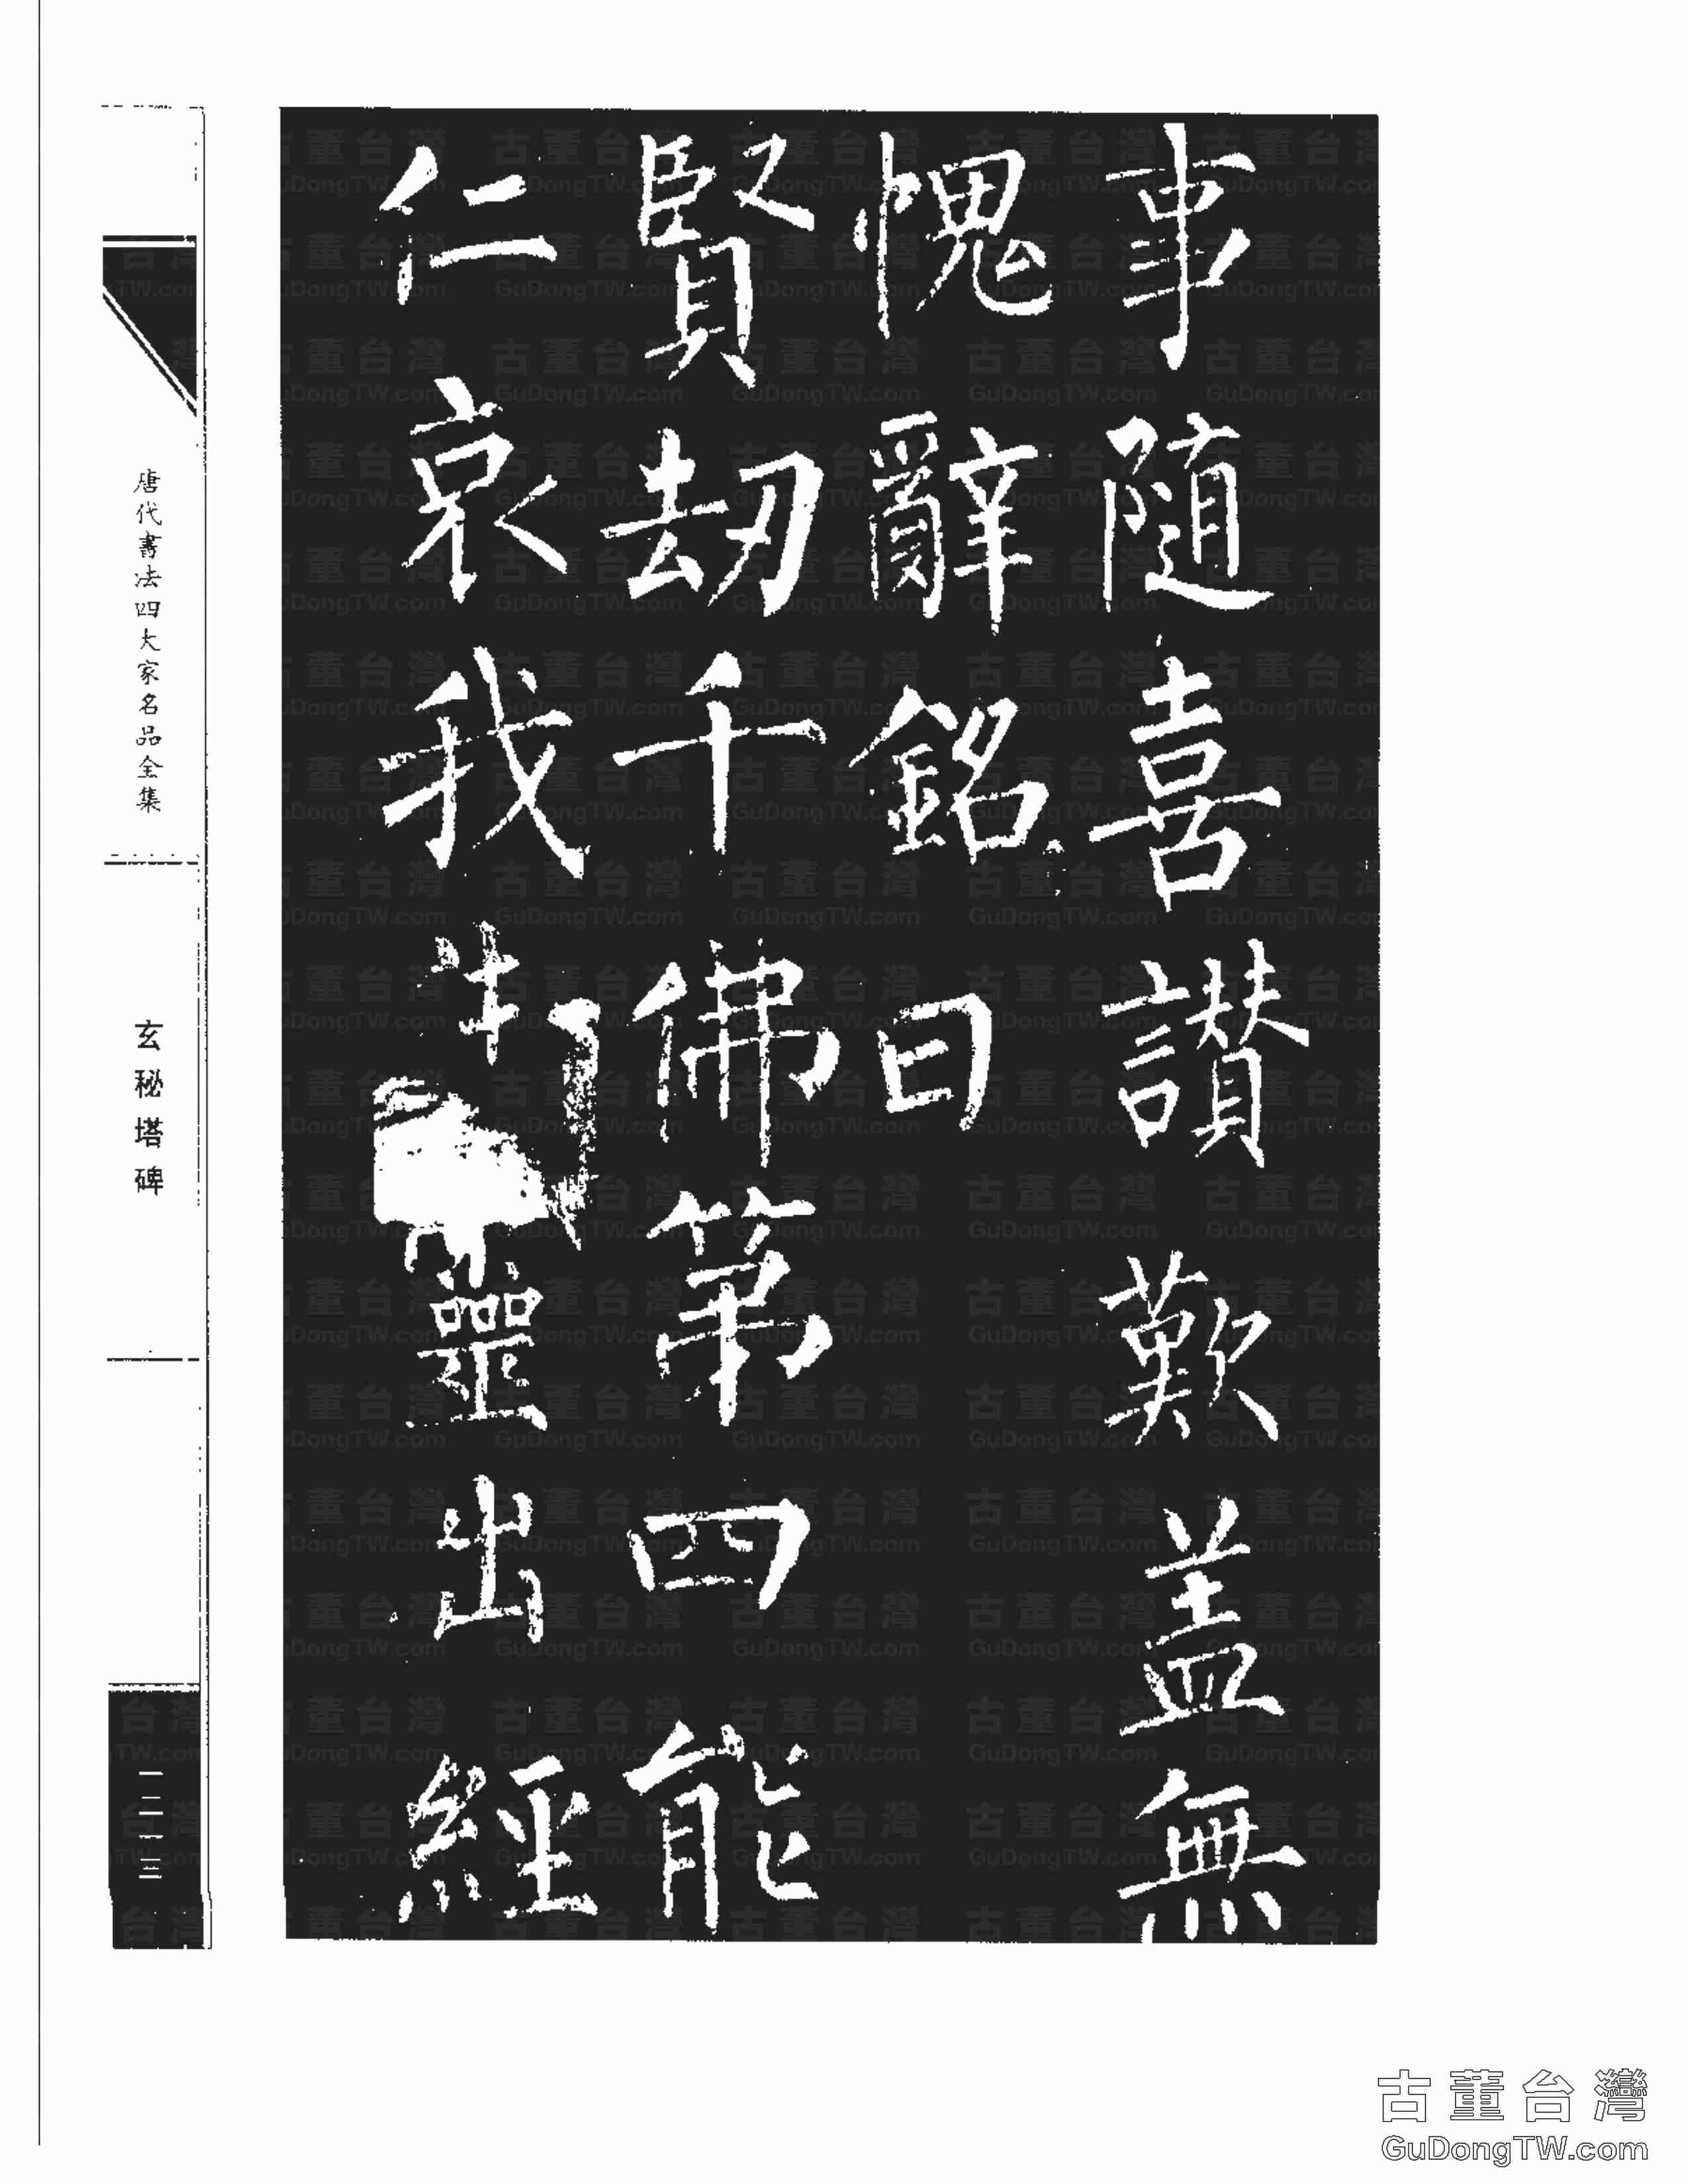 事隨喜讃歎盖無
愧辭銘曰
賢劫千佛第四能
仁哀我出經
唐代書法四大家名品全集
玄秘塔碑
一二一三
古董台灣
GuDongTW.com